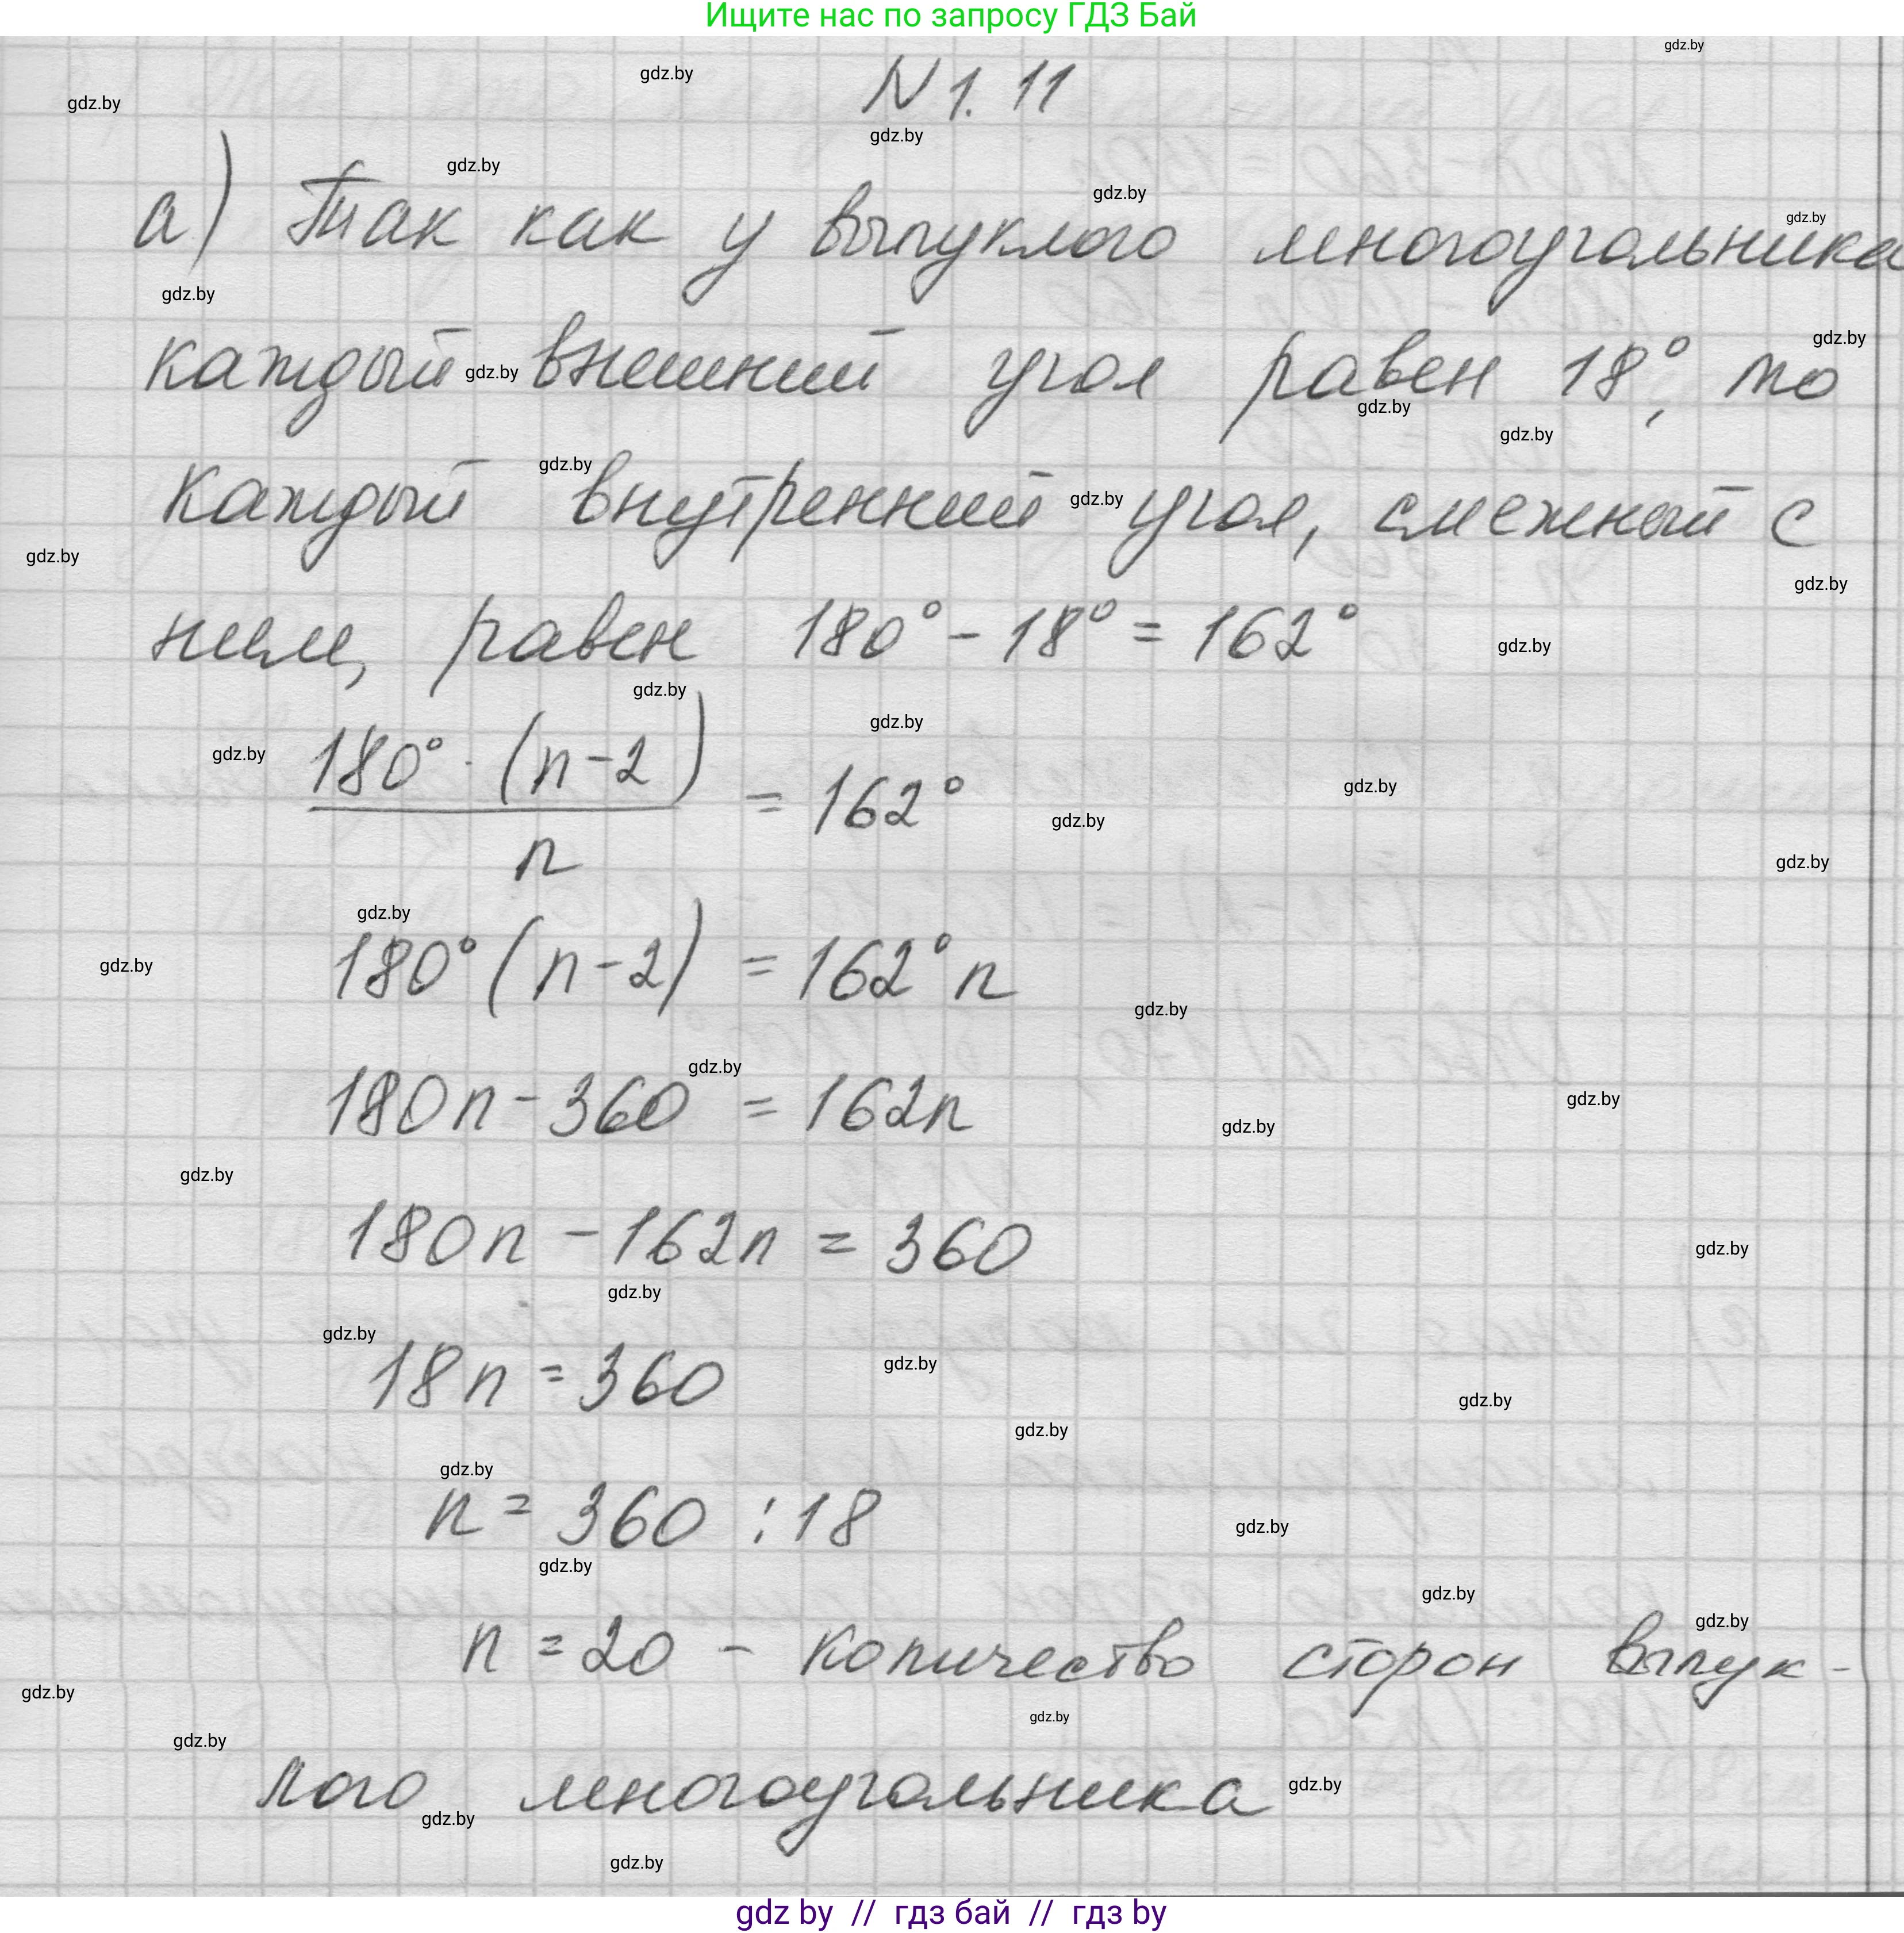 Ищите нас по запросу ГДЗ Бай
N 1. 11
а) Так как у выпуклого многоугольника
каждый внешний угол равен 18°, то
каждый внутренний угол, смежный с
ним, равен 180° - 18° = 162°
180° · (n-2) / n = 162°
180° (n-2) = 162° n
180n - 360 = 162n
180n - 162n = 360
18n = 360
n = 360 : 18
n = 20 - количество сторон выпук-
лого многоугольника
gdz by // гдз бай // гдз by